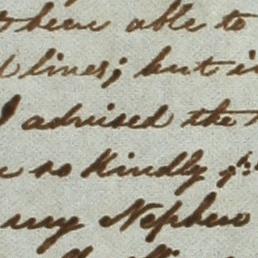 been able to
lines; but i
I advised the
so kindly
my Nephew